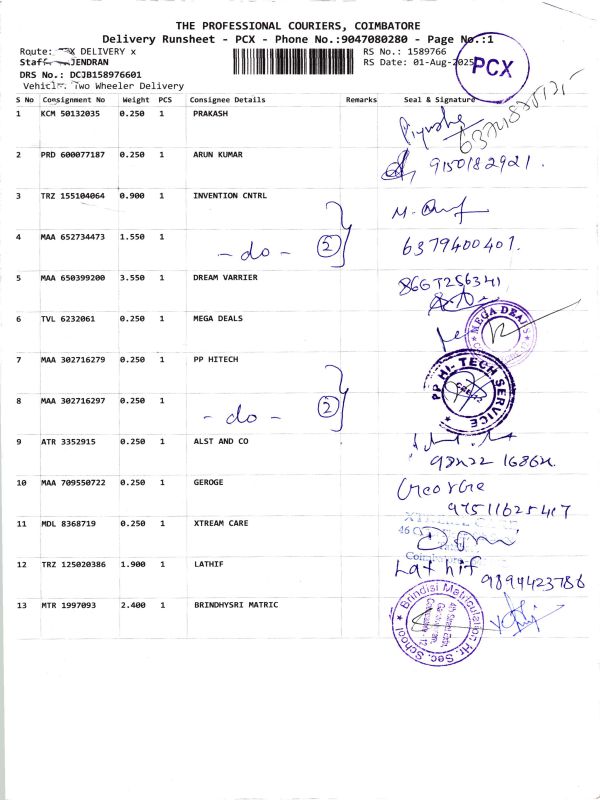 THE PROFESSIONAL COURIERS, COIMBATORE
Delivery Runsheet - PCX - Phone No.:9047080280 - Page No.:1
Route: X DELIVERY x
RS No.: 1589766
Staff JENDRAN
RS Date: 01-Aug-2025
PCX
DRS No.: DCJB158976601
Vehicle: Two Wheeler Delivery
S No Consignment No Weight PCS Consignee Details Remarks Seal & Signature
1 KCM 50132035 0.250 1 PRAKASH
2 PRD 600077187 0.250 1 ARUN KUMAR 9150182921.
3 TRZ 155104064 0.900 1 INVENTION CNTRL
4 MAA 652734473 1.550 1 - do - 2 6379400401.
5 MAA 650399200 3.550 1 DREAM VARRIER
6 TVL 6232061 0.250 1 MEGA DEALS MEGA DEALS
7 MAA 302716279 0.250 1 PP HITECH PP HI-TECH SERVICE
8 MAA 302716297 0.250 1 - do - 2
9 ATR 3352915 0.250 1 ALST AND CO
10 MAA 709550722 0.250 1 GEROGE George
11 MDL 8368719 0.250 1 XTREAM CARE
12 TRZ 125020386 1.900 1 LATHIF Lathif
9894423786
13 MTR 1997093 2.400 1 BRINDHYSRI MATRIC Brindisi Matriculation Hr. Sec. School